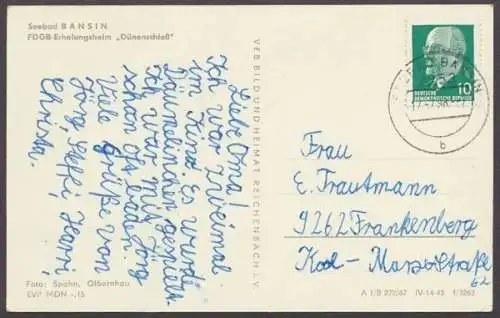 Seebad BANSIN
FDGB-Erholungsheim „Dünenschloß"
Liebe Oma!
Ich war zweimal
im Kino. Es wurde
Däumelinchen gespielt.
Ich war mit Jörg
schon oft baden.
Viele Grüße von
Jörg, Steffi, Harri,
Christa.
Foto: Spohn, Olbernhau
EVP MDN -,15
VEB BILD UND HEIMAT REICHENBACH I. V.
10
DEUTSCHE
DEMOKRATISCHE REPUBLIK
b
Frau
E. Trautmann
9262 Frankenberg
Karl-Marx-Straße
62
A 1/B 272/67 IV-14-45 1/3263